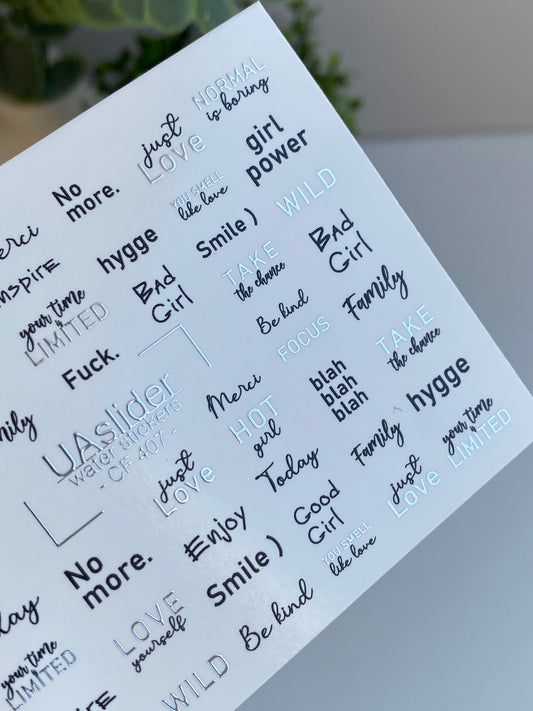 NORMAL
is boring
just
Love
No
more.
girl
power
YOU SMELL
like love
WILD
Smile )
hygge
TAKE
the chance
BAd
GirL
BAd
GirL
your time
is
LIMITED
Be kind
Family
FOCUS
TAKE
the chance
Fuck.
UAslider
water stickers
- CF 407 -
Merci
blah
blah
blah
hygge
HOT
girl
Family
your time
is
LIMITED
just
Love
Today
just
Love
Enjoy
Good
GirL
YOU SMELL
like love
No
more.
Smile )
LOVE
yourself
Be kind
your time
is
LIMITED
WILD